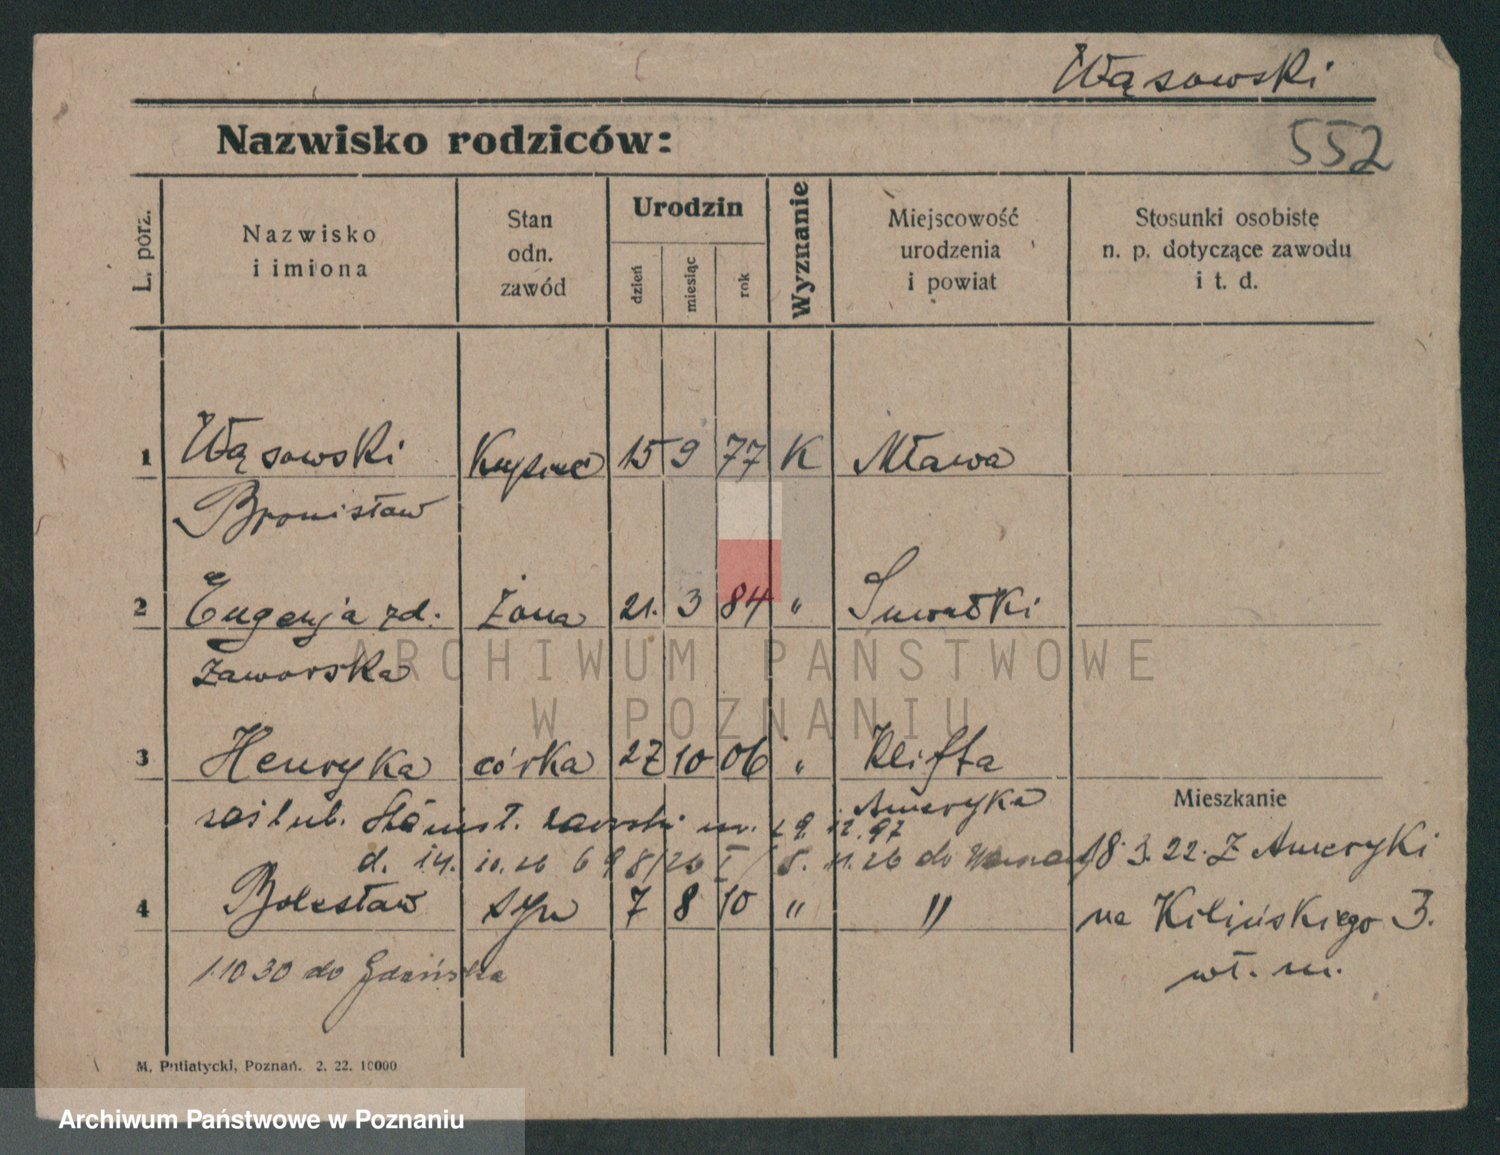 Wąsowski
Nazwisko rodziców:
552
L. porz.
Nazwisko
i imiona
Stan
odn.
zawód
Urodzin
dzień
miesiąc
rok
Wyznanie
Miejscowość
urodzenia
i powiat
Stosunki osobiste
n. p. dotyczące zawodu
i t. d.
1 Wąsowski Kupiec 15 9 77 K Mława
Bronisław
2 Eugenja zd. żona 21. 3 84 " Suwałki
Zaworska
ARCHIWUM PAŃSTWOWE
W POZNANIU
3 Henryka córka 27 10 06 "
Ameryka
Mieszkanie
zaślub. ur. 29. 12. 97
d. 14. 10. 26 698/26 I / 5. 11. 26 do
18. 3. 22. Z Ameryki
4 Bolesław syn 7 8 10 " "
na Kilińskiego 3.
wł. m.
1.10 30 do Gdańska
M. Putiatycki, Poznań. 2. 22. 10000
Archiwum Państwowe w Poznaniu